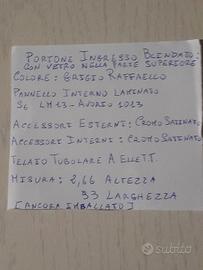 PORTONE INGRESSO BLINDATO:
CON VETRO NELLA PARTE SUPERIORE
COLORE: GRIGIO RAFFAELLO
PANNELLO INTERNO LAMINATO
LM13-AVORIO 1013
ACCESSORI ESTERNI: CROMO SATINATO
ACCESSORI INTERNI: CROMO SATINATO
TELAIO TUBOLARE A ELLE T.
MISURA: 2,66 ALTEZZA
93 LARGHEZZA
[ANCORA IMBALLATO]
subito